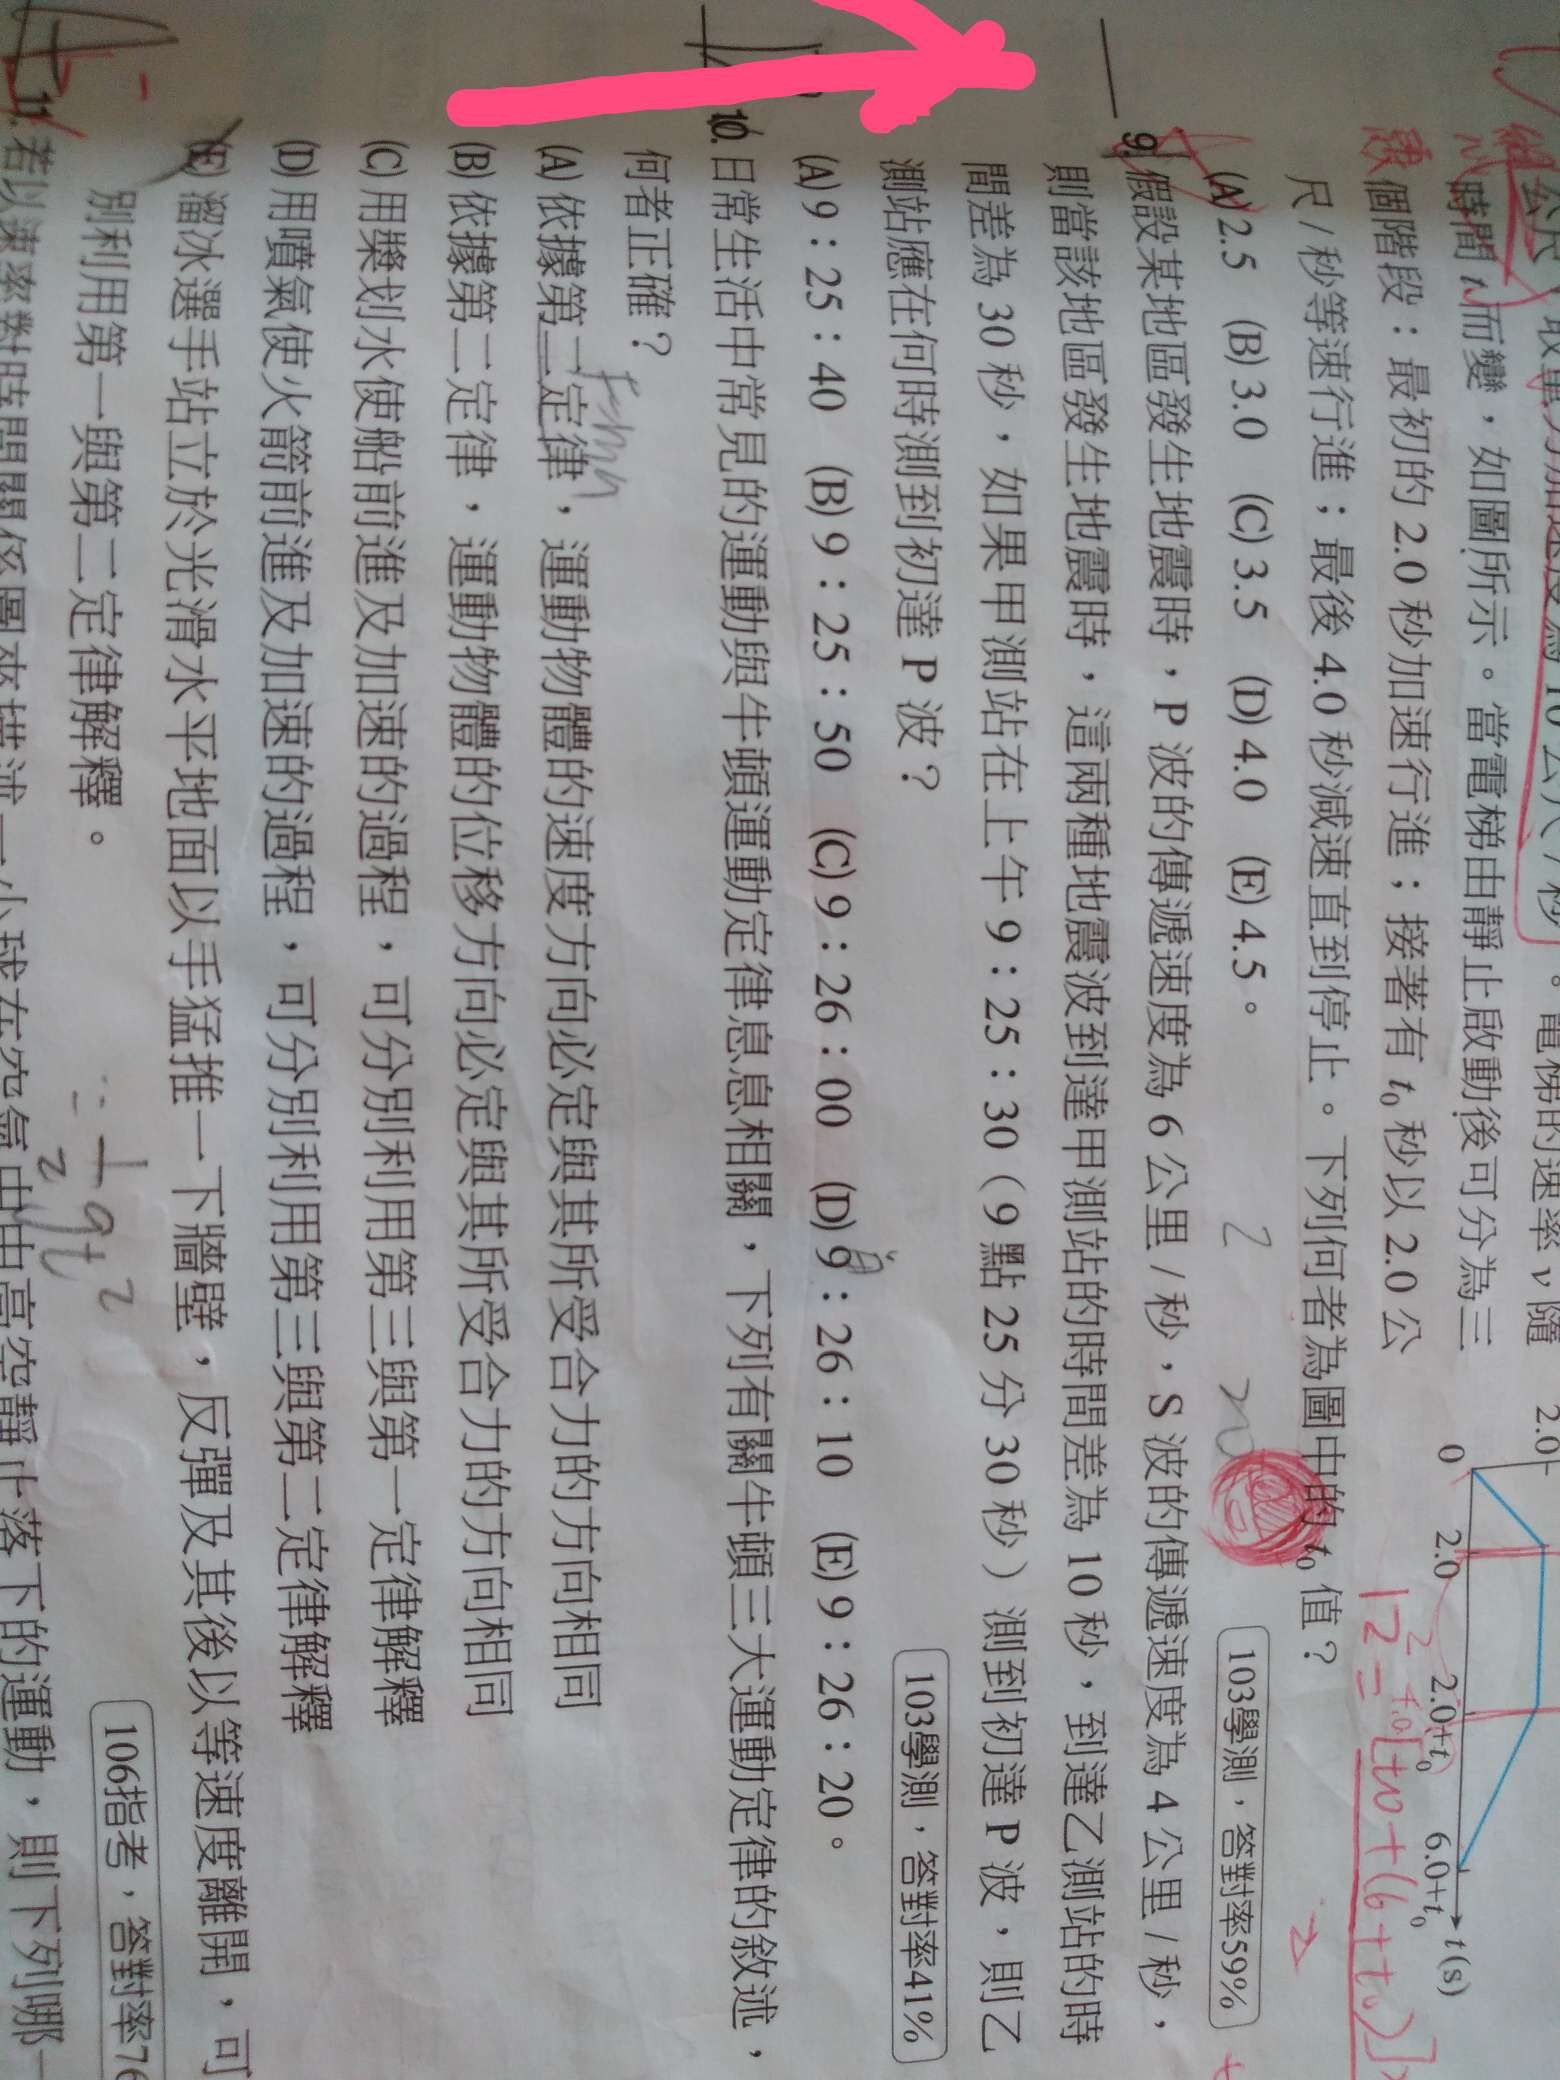 公尺
隨
2.0
時間 t 而變，如圖所示。當電梯由靜止啟動後可分為三
個階段：最初的 2.0 秒加速行進；接著有 t₀ 秒以 2.0 公
尺 / 秒等速行進；最後 4.0 秒減速直到停止。下列何者為圖中的 t₀ 值？
0 2.0 2.0+t₀ 6.0+t₀ t(s)
(A) 2.5 (B) 3.0 (C) 3.5 (D) 4.0 (E) 4.5。
103學測，答對率59%
9. 假設某地區發生地震時，P 波的傳遞速度為 6 公里 / 秒，S 波的傳遞速度為 4 公里 / 秒，
則當該地區發生地震時，這兩種地震波到達甲測站的時間差為 10 秒，到達乙測站的時
間差為 30 秒，如果甲測站在上午 9：25：30（9 點 25 分 30 秒）測到初達 P 波，則乙
測站應在何時測到初達 P 波？
103學測，答對率41%
(A) 9：25：40 (B) 9：25：50 (C) 9：26：00 (D) 9：26：10 (E) 9：26：20。
10. 日常生活中常見的運動與牛頓運動定律息息相關，下列有關牛頓三大運動定律的敘述，
何者正確？
(A) 依據第二定律，運動物體的速度方向必定與其所受合力的方向相同
(B) 依據第二定律，運動物體的位移方向必定與其所受合力的方向相同
(C) 用槳划水使船前進及加速的過程，可分別利用第三與第一定律解釋
(D) 用噴氣使火箭前進及加速的過程，可分別利用第三與第二定律解釋
(E) 溜冰選手站立於光滑水平地面以手猛推一下牆壁，反彈及其後以等速度離開，可
別利用第一與第二定律解釋。
106指考，答對率76
11. 若以速率對時間關係圖來描述一小球在空氣中由高空靜止落下的運動，則下列哪一